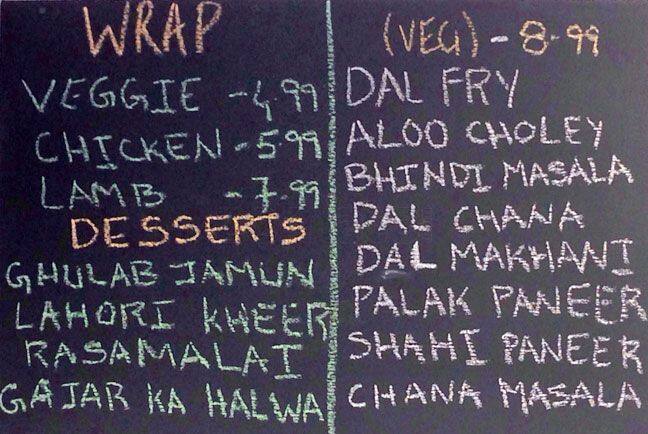 WRAP
VEGGIE - 4.99
CHICKEN - 5.99
LAMB - 7.99
DESSERTS
GHULAB JAMUN
LAHORI KHEER
RASAMALAI
GAJAR KA HALWA
(VEG) - 8.99
DAL FRY
ALOO CHOLEY
BHINDI MASALA
DAL CHANA
DAL MAKHANI
PALAK PANEER
SHAHI PANEER
CHANA MASALA